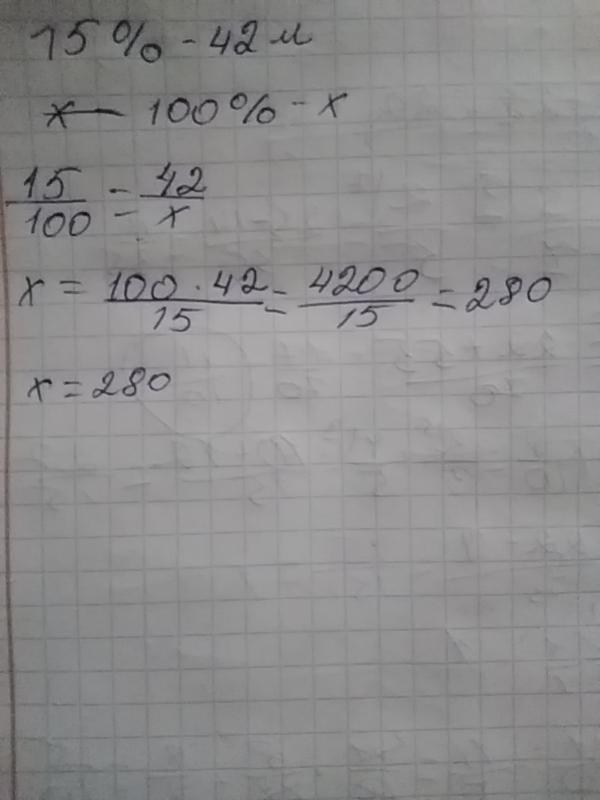 15% - 42 м
100% - x
15/100 = 42/x
x = 100 · 42/15 = 4200/15 = 280
x = 280